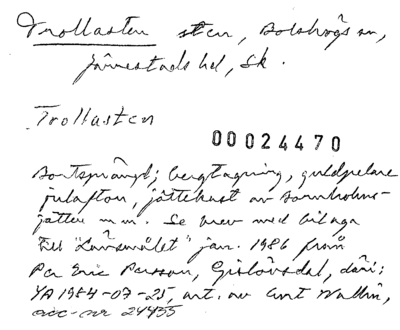 Trollasten sten, Bolshögs sn,
Järrestads hd, Sk.
Trollasten
00024470
Bortsprängd; bergtagning, guldpelare
julafton, jättekast av Bornholms-
jätten m.m. Se brev med bilaga
till "Landsmålet" jan. 1986 från
Per Eric Persson, Gislövsdal, däri:
YA 1984-07-25, art. av Curt Wallin,
acc-nr 24455